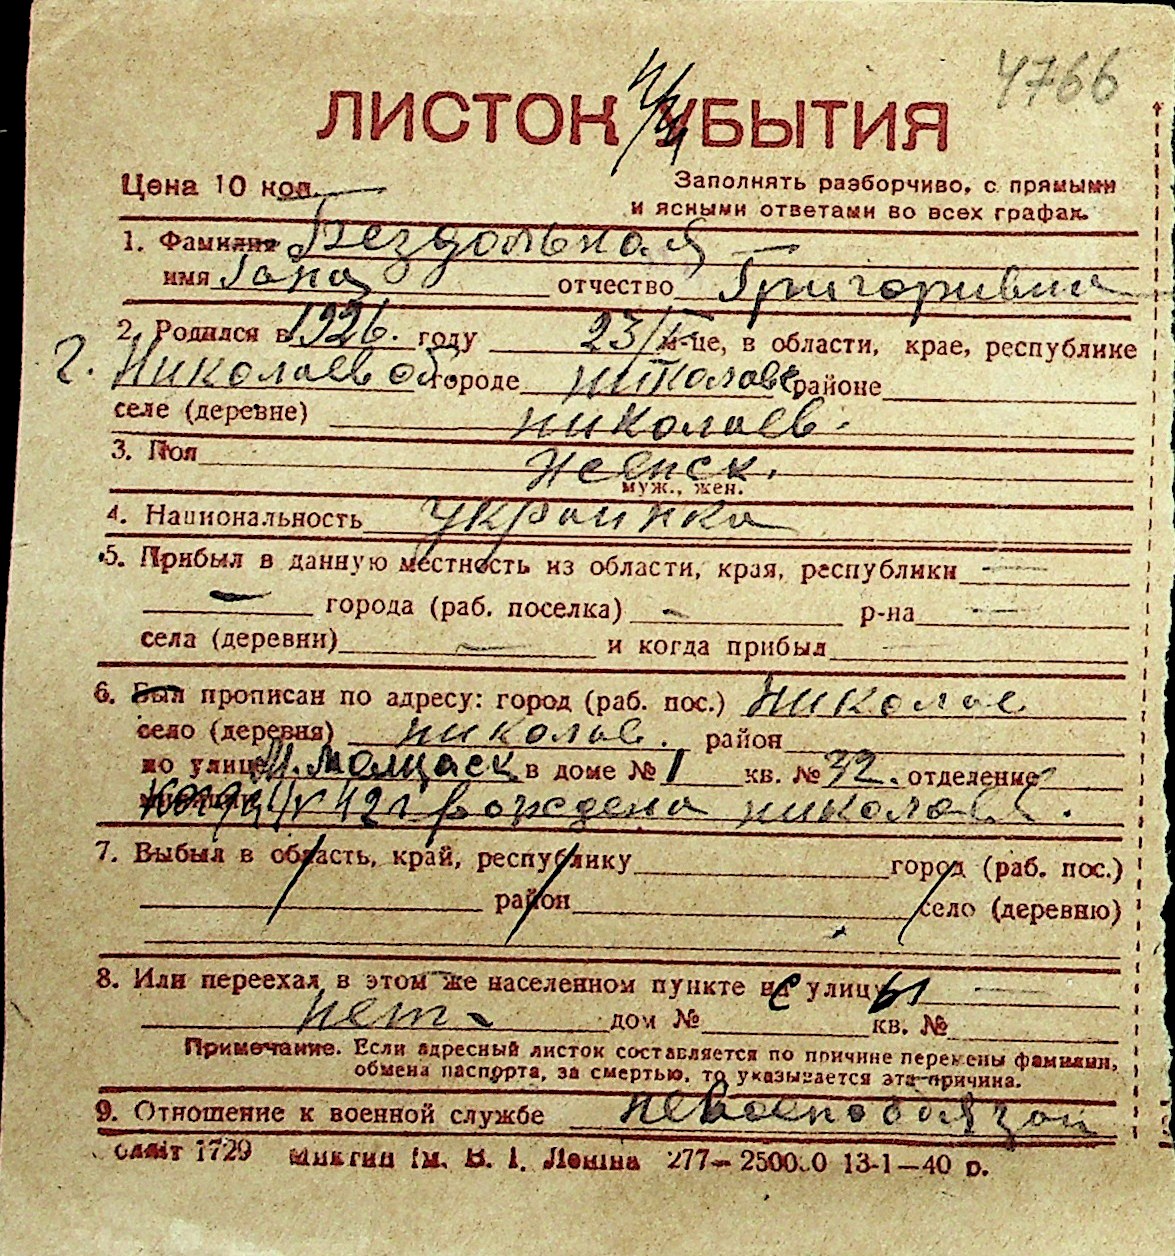 4766
ЛИСТОК УБЫТИЯ
Цена 10 коп.
Заполнять разборчиво, с прямыми
и ясными ответами во всех графах.
1. Фамилия Бездольная
имя отчество Григоривна
2. Родился в 1926. году 23/ м-це, в области, крае, республике
г. Николаев об. городе николаев районе
селе (деревне) николаев.
3. Пол женск.
муж., жен.
4. Национальность украинка
5. Прибыл в данную местность из области, края, республики —
— города (раб. поселка) — р-на —
села (деревни) — и когда прибыл —
6. Был прописан по адресу: город (раб. пос.) Николае
село (деревня) николаев. район
по улице в доме № 1 кв. № 32. отделение
42г рождена николаев.
7. Выбыл в область, край, республику город (раб. пос.)
район село (деревню)
8. Или переехал в этом же населенном пункте с улицы —
нет - дом № кв. №
Примечание. Если адресный листок составляется по причине перемены фамилии,
обмена паспорта, за смертью, то указывается эта причина.
9. Отношение к военной службе невоенообязан
1729 Ім. В. І. Леніна 277—250000 13-1—40 р.